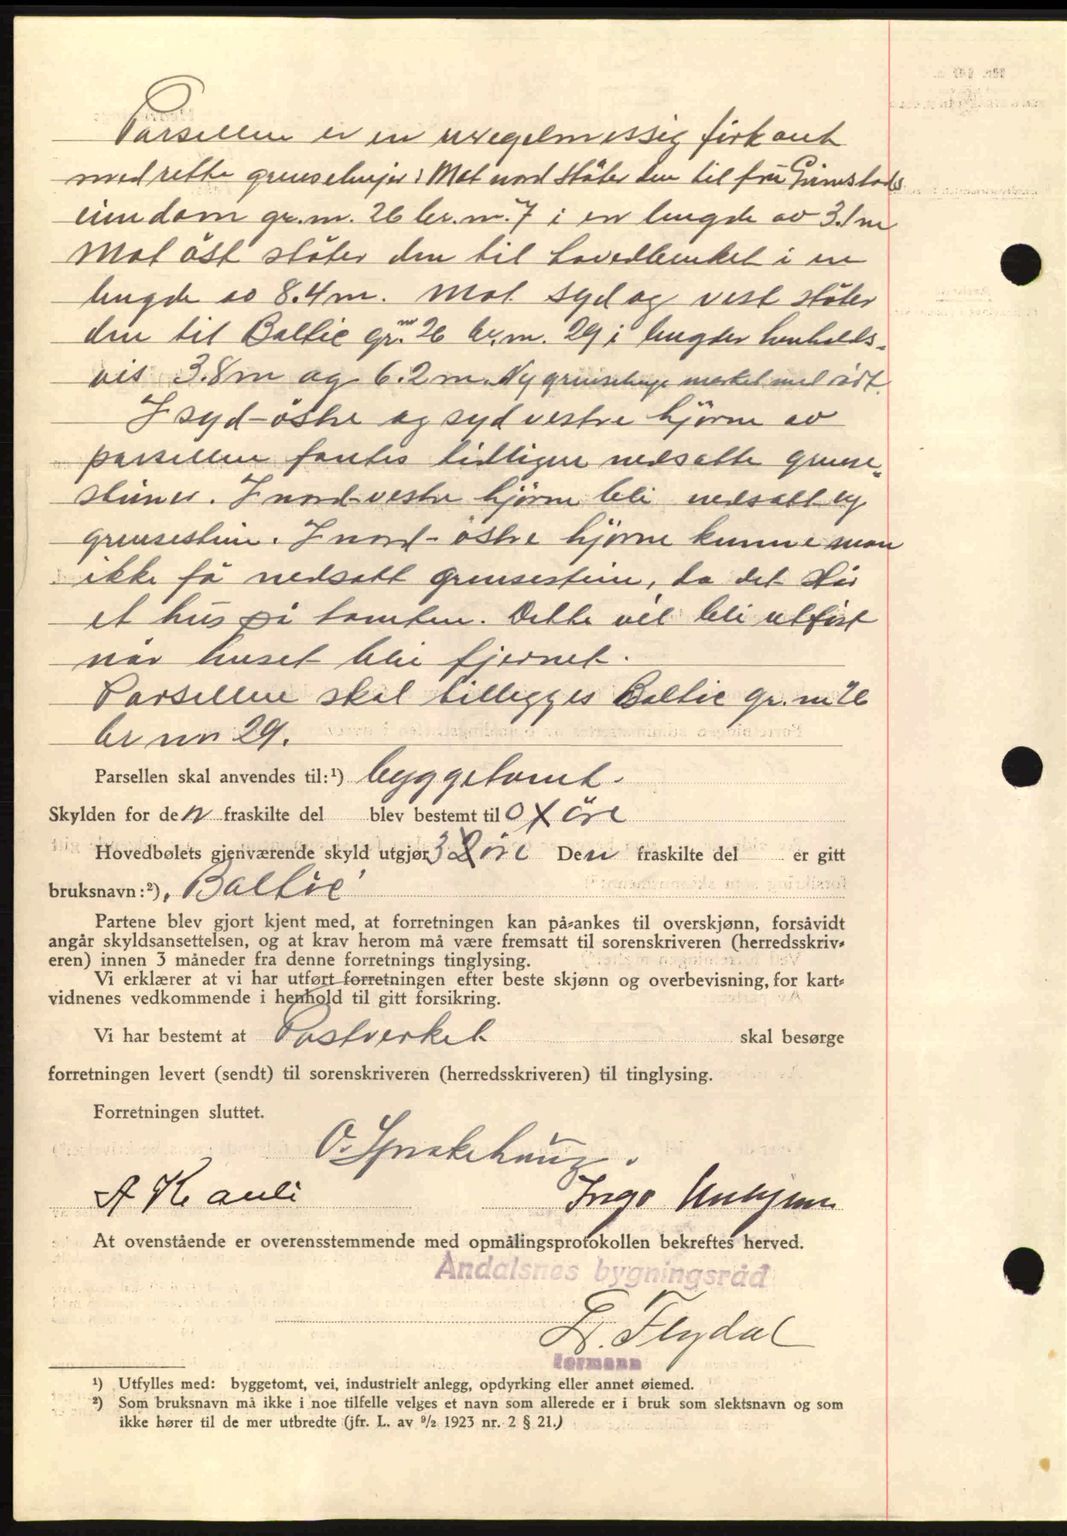 Parsellen er en uregelmessig firkant
med rette grenselinjer: Mot nord støter den til fru Grimstads
eiendom gr.nr. 26 br.nr. 7 i en lengde av 3.1 m
Mot øst støter den til hovedbruket i en
lengde av 8.4 m. Mot syd og vest støter
den til Baltic gr. nr 26 br.nr. 29 i lengder henholds-
vis 3.8 m og 6.2 m. Ny grenselinje merket med rødt.
I syd-østre og syd vestre hjørne av
parsellen fantes tidligere nedsatte grense-
steiner. I nord-vestre hjørne ble nedsatt ny
grensestein. I nord-østre hjørne kunne man
ikke få nedsatt grensestein, da det står
et hus på tomten. Dette vil bli utført
når huset blir fjernet.
Parsellen skal tillegges Baltic gr. nr 26
br nr 29.
Parsellen skal anvendes til:¹) byggetomt.
Skylden for den fraskilte del blev bestemt til 0 øre
Hovedbølets gjenværende skyld utgjør 3 øre Den fraskilte del er gitt
bruksnavn:²) „Baltic"
Partene blev gjort kjent med, at forretningen kan på-ankes til overskjønn, forsåvidt
angår skyldsansettelsen, og at krav herom må være fremsatt til sorenskriveren (herredsskriv-
eren) innen 3 måneder fra denne forretnings tinglysing.
Vi erklærer at vi har utført forretningen efter beste skjønn og overbevisning, for kart-
vidnenes vedkommende i henhold til gitt forsikring.
Vi har bestemt at Postverket skal besørge
forretningen levert (sendt) til sorenskriveren (herredsskriveren) til tinglysing.
Forretningen sluttet.
O.
A Kavli Inga
At ovenstående er overensstemmende med opmålingsprotokollen bekreftes herved.
Åndalsnes bygningsråd
Flydal
formann
¹) Utfylles med: byggetomt, vei, industrielt anlegg, opdyrking eller annet øiemed.
²) Som bruksnavn må ikke i noe tilfelle velges et navn som allerede er i bruk som slektsnavn og som
ikke hører til de mer utbredte (jfr. L. av 9/2 1923 nr. 2 § 21.)